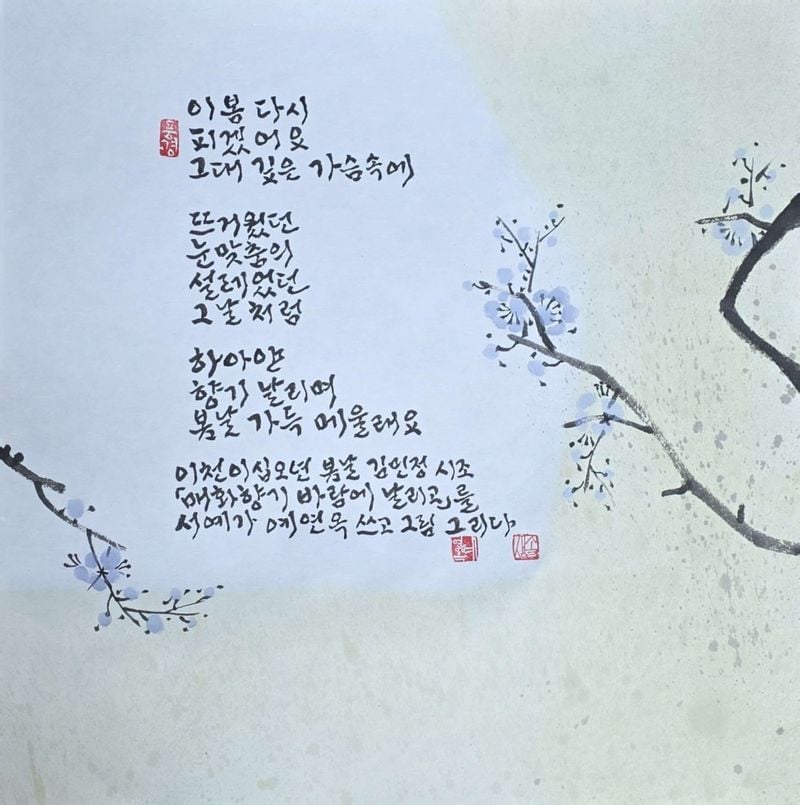 이봄 다시
피겠어요
그대 깊은 가슴속에
뜨거웠던
눈맞춤의
설레었던
그날처럼
하아얀
향기 날리며
봄날 가득 메울래요
이천이십오년 봄날 김민정 시조
「매화향기 바람에 날리고」를
서예가 예연옥 쓰고 그림 그리다